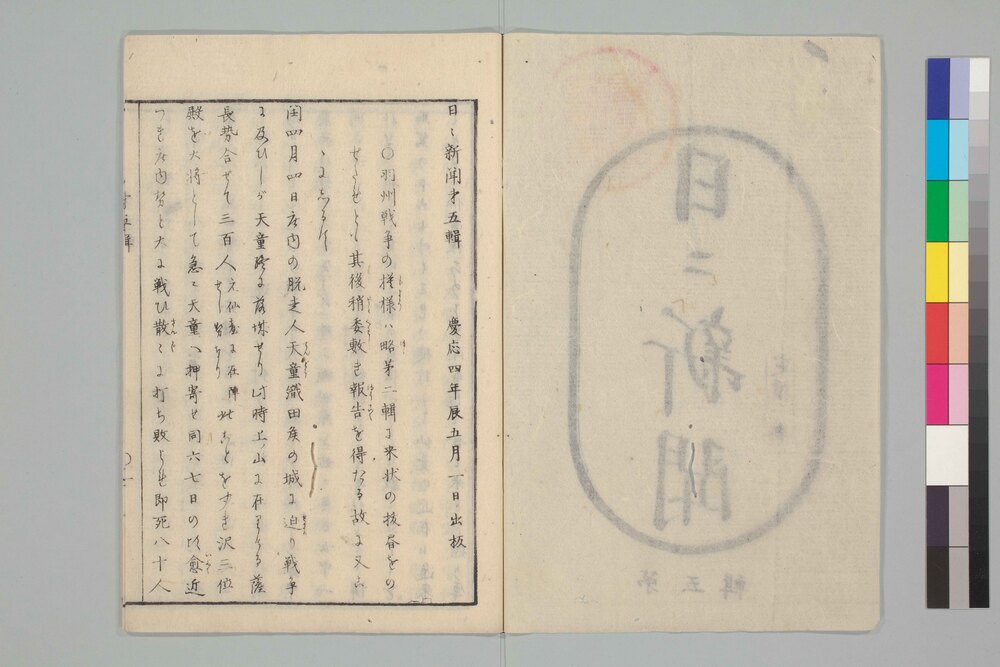 日々新聞才五輯　慶応四年辰五月一日出板
○羽州戦争の模様ハ略第二輯に来状の抜書をの
せたれども其後稍委敷き報告を得たる故に又こ
ゝにしるす
閏四月四日庄内の脱走人天童織田侯の城に迫り戦争
に及ひしが天童終に落城せり此時上ノ山に在りける薩
長勢合せて三百人
殿を大将として急に天童へ押寄せ同六七日の頃愈近
つき庄内勢と大に戦ひ散々に打ち敗られ即死八十人
日々新聞
第五輯